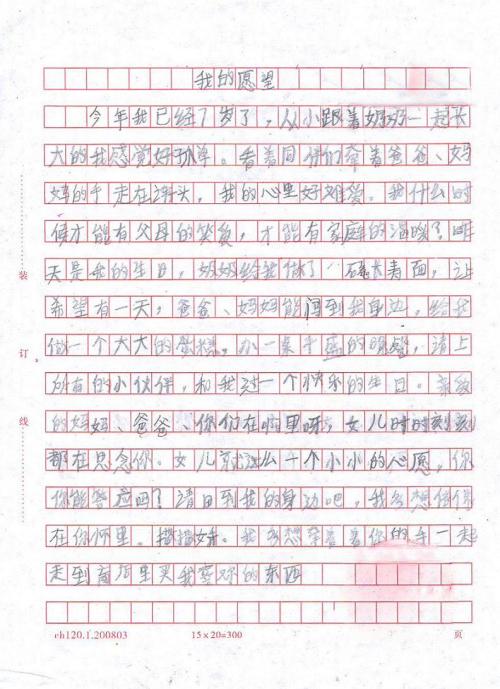 我的愿望
今年我已经7岁了，从小跟着奶奶一起长
大的我感觉好孤单。看着同伴们牵着爸爸、妈
妈的手走在街头，我的心里好难受。我什么时
候才能有父母的笑，才能有家庭的温暖？昨
天是我的生日，奶奶给我做了一碗长寿面，让
希望有一天，爸爸、妈妈能回到我身边，给我
做一个大大的蛋糕，办一桌丰盛的晚餐，请上
所有的小伙伴，和我过一个快乐的生日。亲
的妈妈、爸爸、你们在哪里呀，女儿时时刻刻
都在思念你。女儿就这么一个小小的心愿，你
你能答应吗？请回到我的身边吧，我多想
在你怀里。我多想牵着你的手一起
走到商场里买我喜欢的东西
装
订
线
ch120.1.200803
15×20=300
页